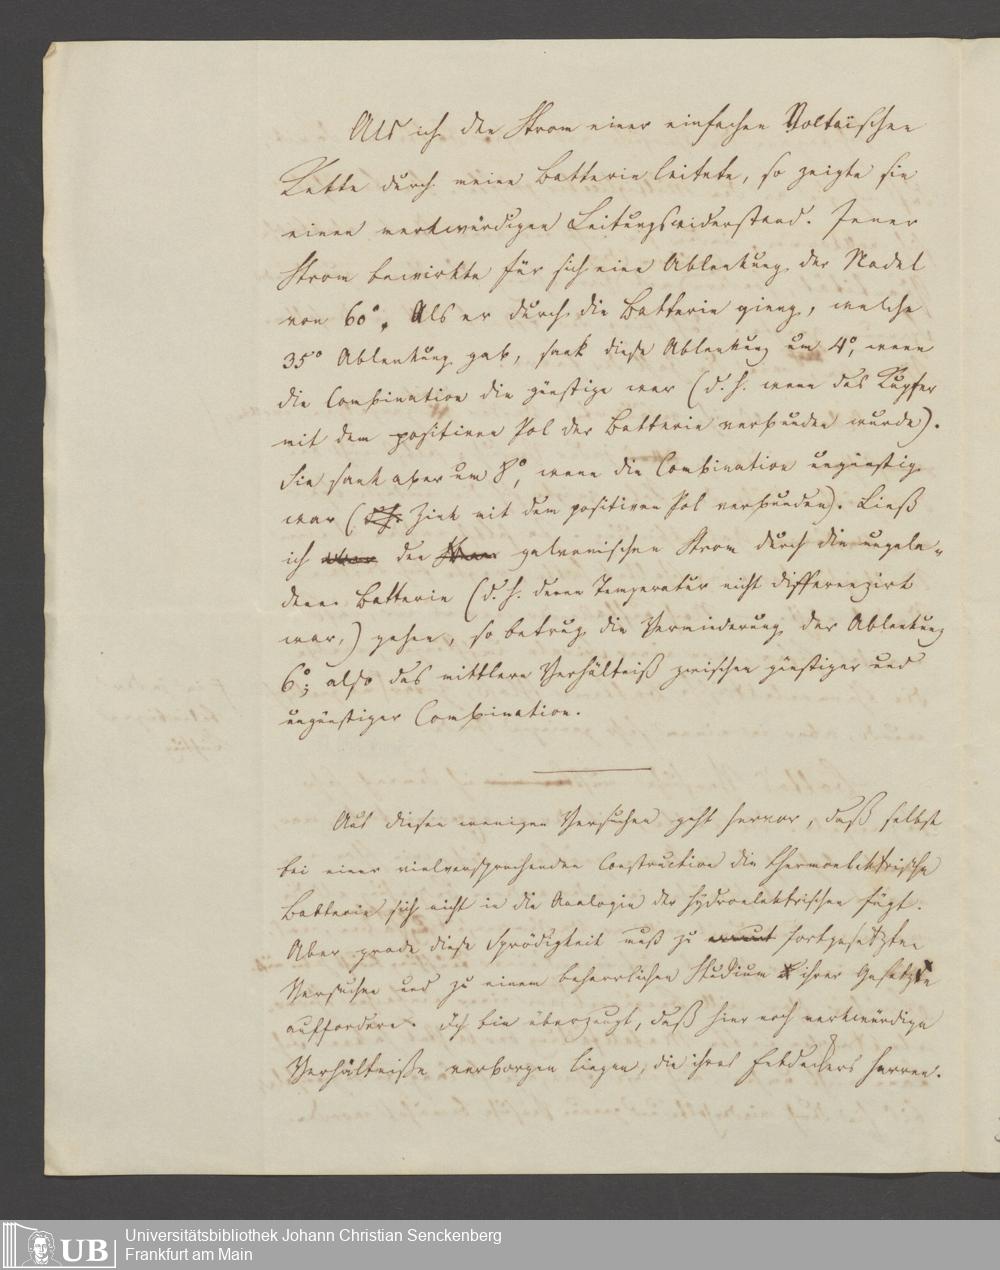 Als ich den Strom einer einfachen Voltaischen
Kette durch meine Batterie leitete, so zeigte sie
einen merkwürdigen Leitungswiderstand. Jener
Strom bewirkte für sich eine Ablenkung der Nadel
von 60°. Als er durch die Batterie gieng, welche
35° Ablenkung gab, sank diese Ablenkung um 4°, wenn
die Combination die günstige war (d. h. wenn das Kupfer
mit dem positiven Pol der Batterie verbunden wurde).
Sie sank aber um 8°, wenn die Combination ungünstig
war (Zink mit dem positiven Pol verbunden). Ließ
ich den galvanischen Strom durch die ungela-
dene Batterie (d. h. deren Temperatur nicht differenzirt
war,) gehen, so betrug die Verminderung der Ablenkung
6°; also das mittlere Verhältniß zwischen günstiger und
ungünstiger Combination.
Aus diesen wenigen Versuchen geht hervor, daß selbst
bei einer vielversprechenden Construction die thermoelektrische
Batterie sich nicht in die Analogie der hydroelektrischen fügt.
Aber grade diese Sprödigkeit muß zu fortgesetzten
Versuchen und zu einem beharrlichen Studium ihrer Gesetze
auffordern. Ich bin überzeugt, daß hier noch merkwürdige
Verhältniße verborgen liegen, die ihres Entdeckers harren.
UB
Universitätsbibliothek Johann Christian Senckenberg
Frankfurt am Main